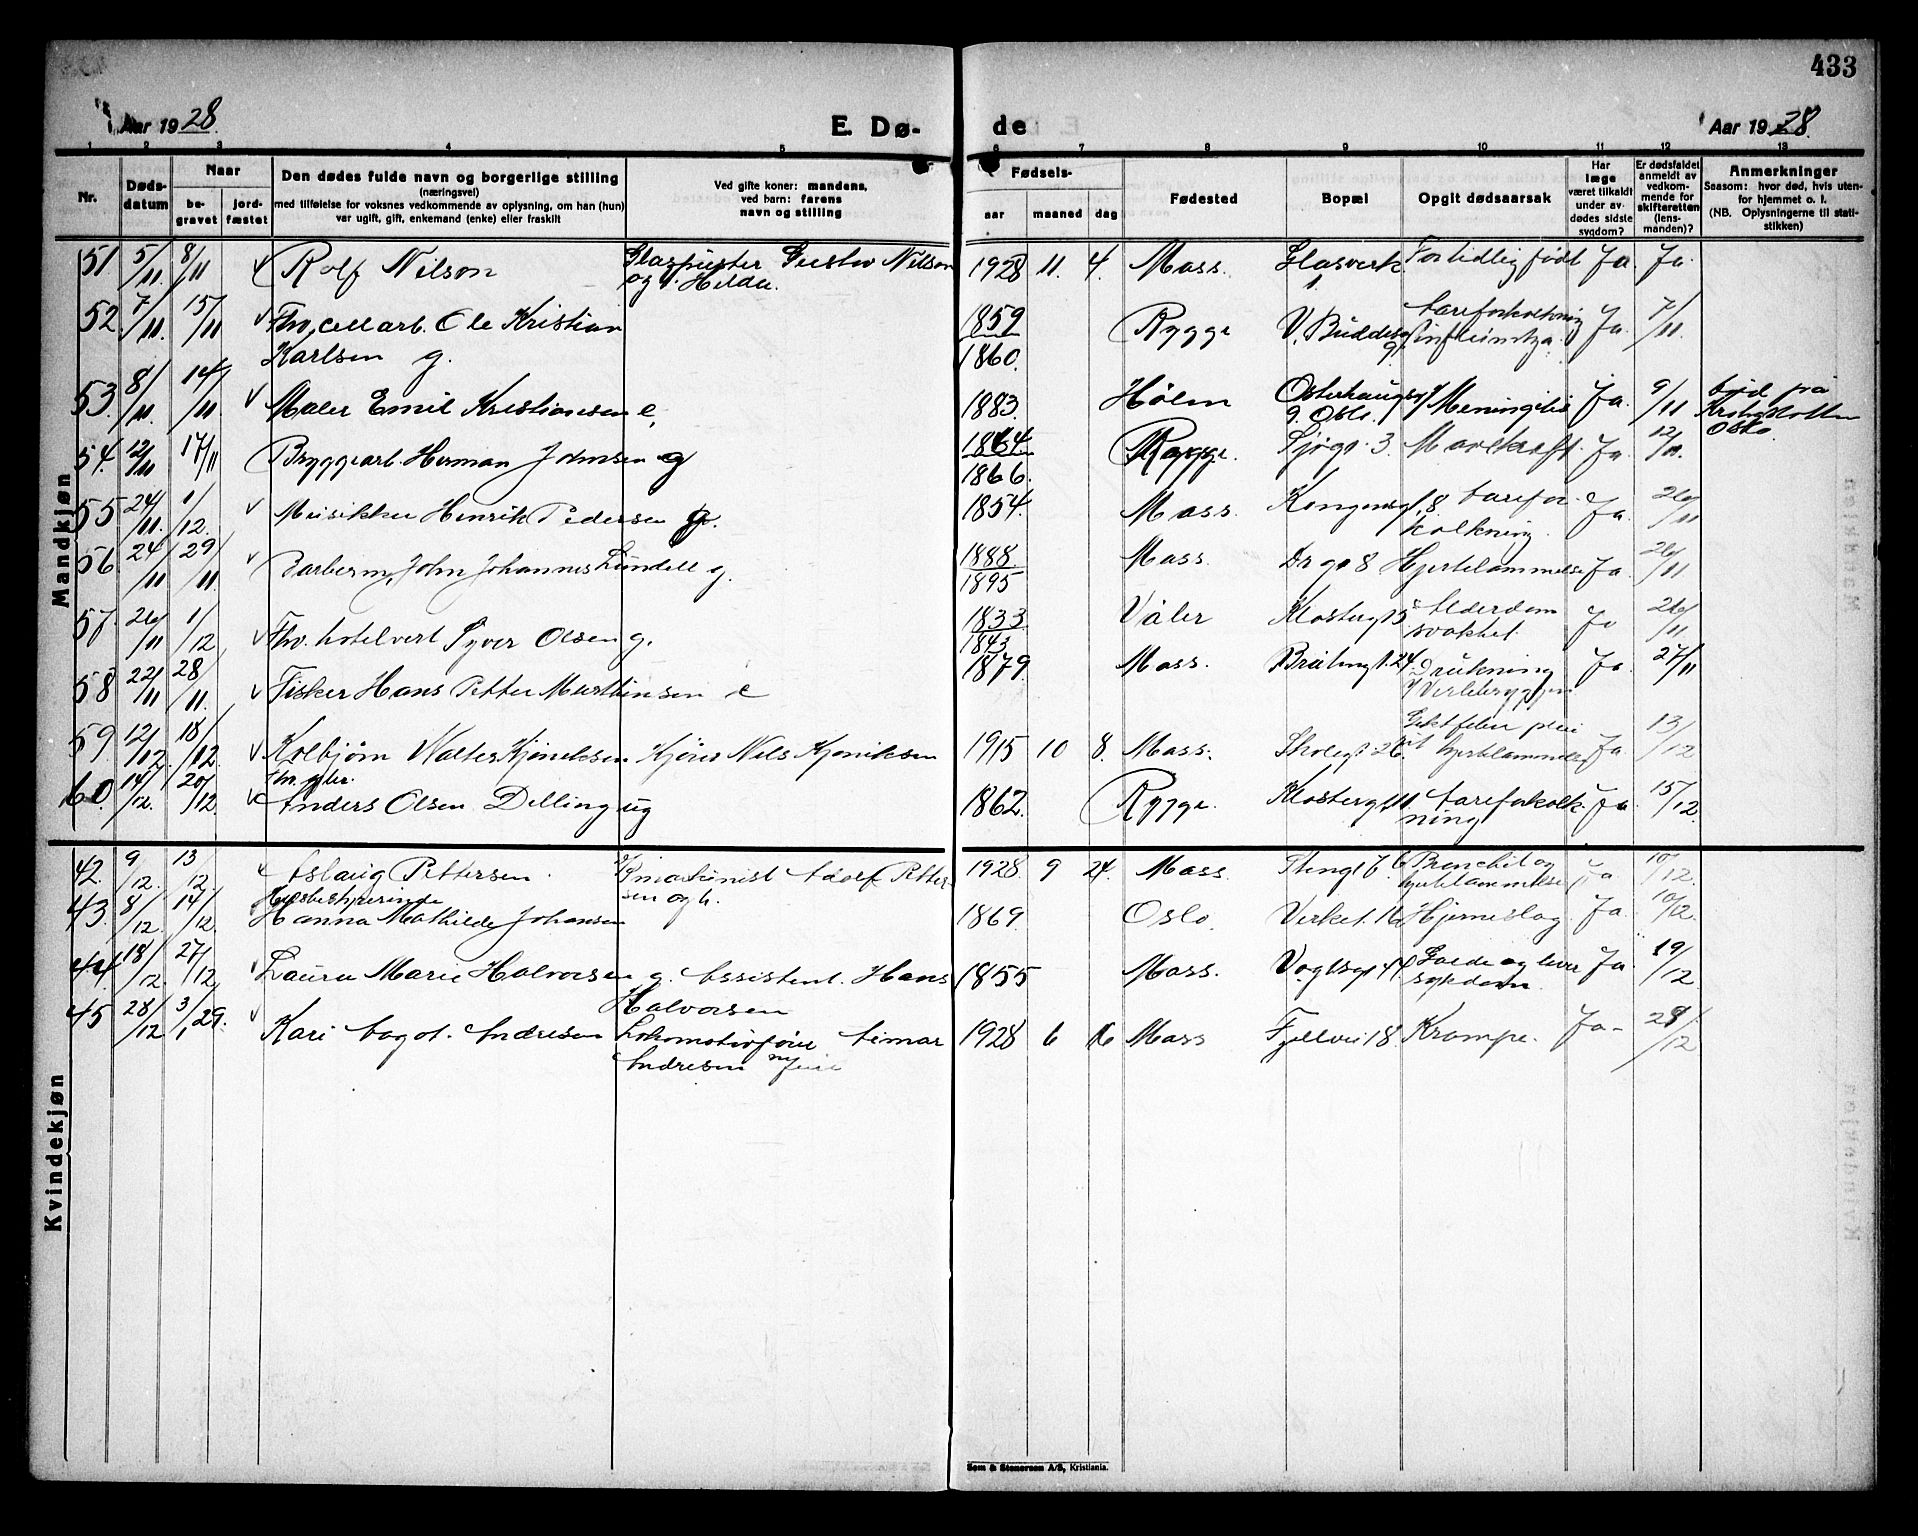 433
Aar 1928. E. Dø- de Aar 1928.
1 2 3 4 5 6 7 8 9 10 11 12 13
Nr.
Døds-
datum
Naar
be-
gravet
jord-
fæstet
Den dødes fulde navn og borgerlige stilling
(næringsvei)
med tilføielse for voksnes vedkommende av oplysning, om han (hun)
var ugift, gift, enkemand (enke) eller fraskilt
Ved gifte koner: mandens,
ved barn: farens
navn og stilling
Fødsels-
aar maaned dag
Fødested
Bopæl
Opgit dødsaarsak
Har
læge
været tilkaldt
under av-
dødes sidste
sygdom?
Er dødsfaldet
anmeldt av
vedkom-
mende for
skifteretten
(lens-
manden)?
Anmerkninger
Saasom: hvor død, hvis uten-
for hjemmet o. l.
(NB. Oplysningerne til stati-
stikken)
Mandkjøn
51 5/11 8/11 Rolf Nilson Glaspuster Gustav Nilson 1928 11 4. Moss. Glasverk For tidlig født Ja. Ja.
og Hilda.
52 7/11. 15/11 Fhv. cellarb. Ole Kristian 1859 Rygge V. Buddesg. Åreforkalkning Ja. 7/11.
Karlsen g. 1860. 9. influensa.
53. 8/11 14/11 Maler Emil Kristiansen e. 1883. Hølen Osterhausg. Meningitis Ja. 9/11 død på
9. Oslo. Krohgstøtten
Oslo.
54. 12/11 17/11 Bryggearb. Herman Johnsen g 1864. Rygge. Sjøgt. 3. Mavekræft. Ja. 12/11.
1866.
55 24/11 1/12. Musikker Henrik Pedersen g. 1854. Moss. Kongensg. 8. Årefor- Ja. 26/11
kalkning.
56 24/11 29/11 Barberm. John Johannes Lundell g. 1888. Moss. Dr. gt 8 Hjertelammelse Ja. 26/11
1895
57. 26/11 1/12 Fhv. hotelvert Syver Olsen g. 1833 Våler Klostergt 5 Alderdom Ja 26/11
1843 svakhet.
58 22/11 28/11. Fisker Hans Petter Martinsen e 1879. Moss. Bråtengt. 24. Drukning Ja. 27/11
v/ Verlebryggen
59. 12/12. 18/12 Kolbjørn Walter Kjøniksen Kjører Nils Kjøniksen 1915 10 8. Moss. Skolegt 26. Ja. 13/12
hjertelammelse
60. 14/12. 20/12 Fhv. gbr.
Anders Olsen Dilling ug 1862. Rygge. Klostergt 11. Åreforkalk- Ja. 15/12.
ning
Kvindekjøn
42. 9/12. 13/12 Aslaug Pettersen. Kinomaskinist Adolf Petter- 1928. 9 24. Moss. Stengt 6 Bronchit og Ja 10/12.
sen og h. hjertelammelse
43. 8/12. 14/12. Husbestyrerinde
Hanna Mathilde Johansen 1869. Oslo. Verket. 16 Hjerneslag Ja. 10/12.
44. 18/12. 27/12 Laura Marie Halvorsen g. Assistent. Hans 1855 Moss. Vogtsgt 44 Galde og lever Ja. 19/12
Halvorsen sykdom.
45 28/12 3/1 29. Kari Aagot. Andresen Lokomotivfører Einar 1928 6 16 Moss Fjellvei 18. Krampe. Ja- 29/12
Andresen
Sem & Stenersen A/S, Kristiania.